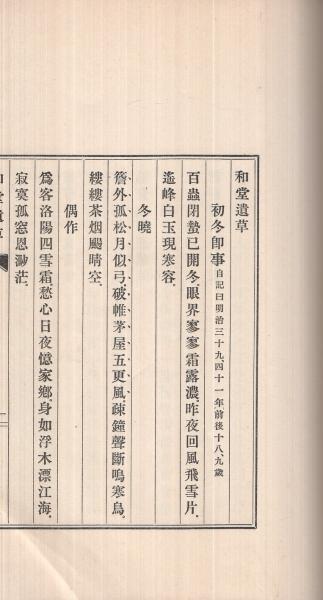 和堂遺草
初冬卽事 自記曰明治三十九、四十一年前後十八、九歲
百蟲閉蟄已開冬。眼界寥寥霜露濃。昨夜回風飛雪片。
遙峰白玉現寒容。
冬曉
簷外孤松月似弓。破帷茅屋五更風。疎鐘聲斷鳴寒烏。
縷縷茶烟颺晴空。
偶作
爲客洛陽四雪霜。愁心日夜憶家鄕。身如浮木漂江海。
寂寞孤窓思渺茫。
和堂遺草
一